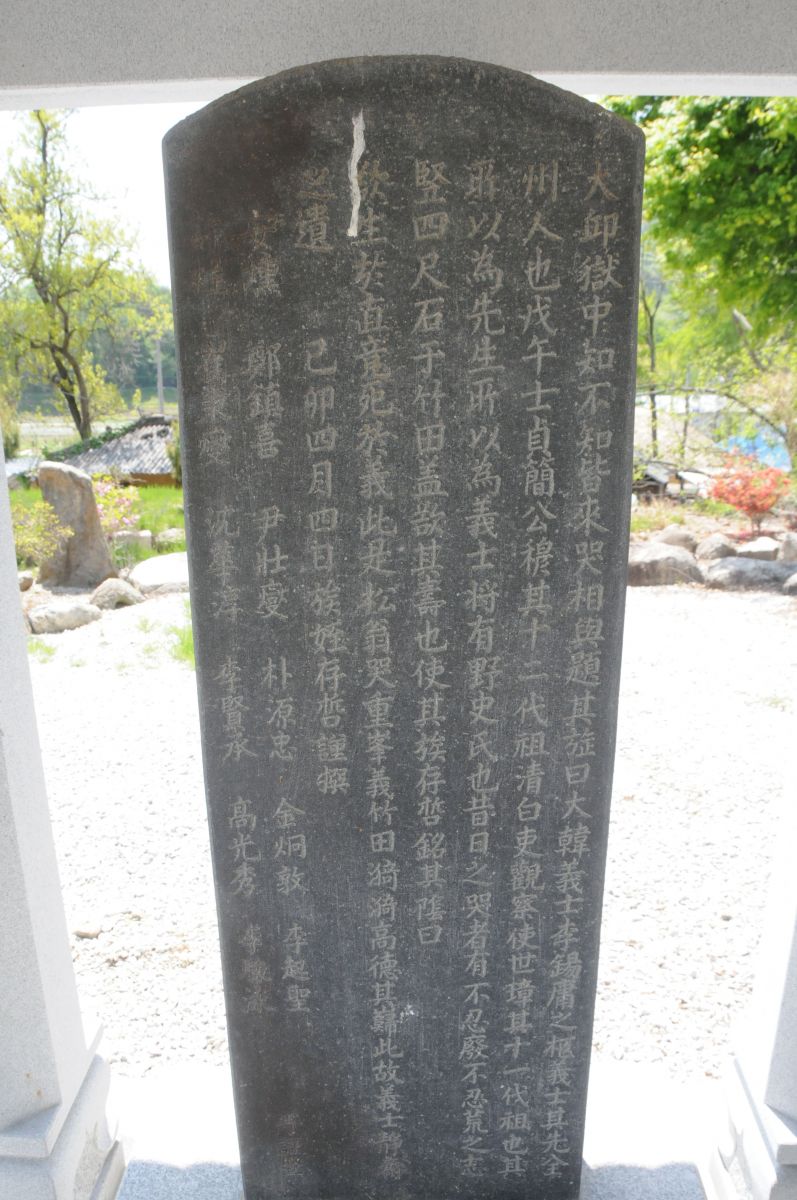 大邱獄中知不知皆來哭相與題其旌曰大韓義士李錫庸之柩義士其先全
州人也戊午士貞簡公穆其十二代祖清白吏觀察使世璋其十一代祖也其
所以為先生所以為義士将有野史氏也昔日之哭者有不忍廢不忍荒之志
竪四尺石于竹田盖欲其壽也使其族存哲銘其陰曰
歟生於直竟死於義此是松翁哭重峯義竹田猗猗高德其
此故義士
之遺 己卯四月四日族姪存哲謹撰
鄭鎮喜 尹壯燮 朴源忠 金炯敦 李起聖
沈 李賢承 高光秀 李